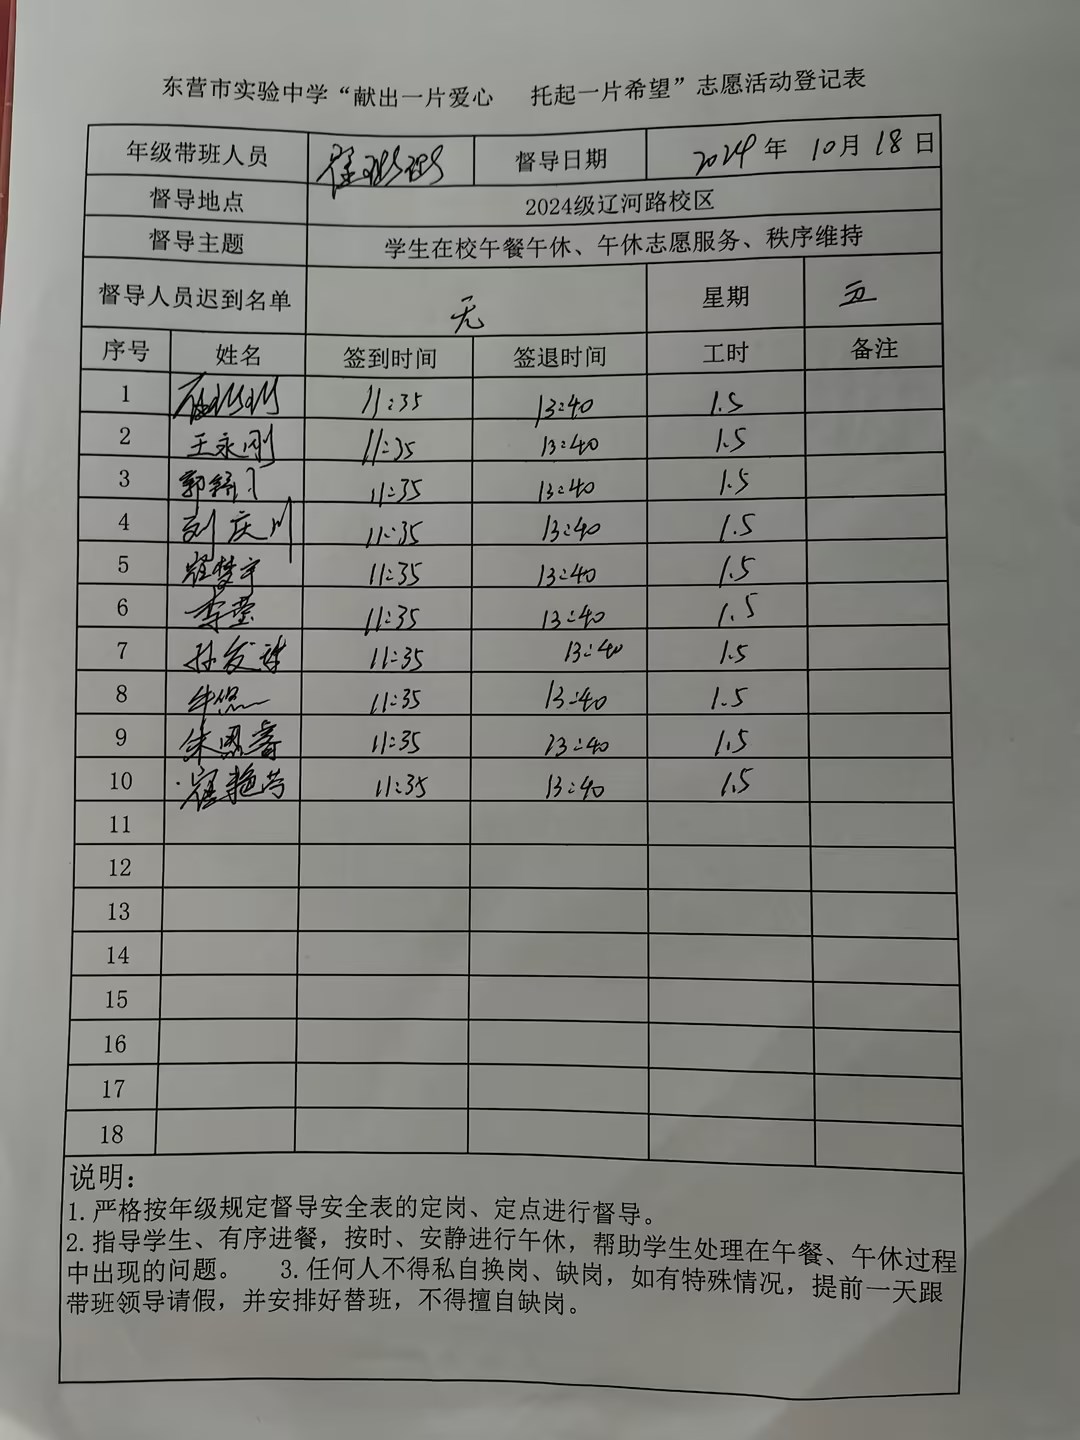 东营市实验中学“献出一片爱心 托起一片希望”志愿活动登记表
年级带班人员 崔 督导日期 2024年 10月18日
督导地点 2024级辽河路校区
督导主题 学生在校午餐午休、午休志愿服务、秩序维持
督导人员迟到名单 无 星期 五
序号 姓名 签到时间 签退时间 工时 备注
1 11:35 13:40 1.5
2 王永刚 11:35 13:40 1.5
3 郭 11:35 13:40 1.5
4 刘庆川 11:35 13:40 1.5
5 崔梦宇 11:35 13:40 1.5
6 李莹 11:35 13:40 1.5
7 孙发 11:35 13:40 1.5
8 牛悠一 11:35 13:40 1.5
9 朱恩睿 11:35 13:40 1.5
10 崔艳芳 11:35 13:40 1.5
11
12
13
14
15
16
17
18
说明：
1.严格按年级规定督导安全表的定岗、定点进行督导。
2.指导学生、有序进餐，按时、安静进行午休，帮助学生处理在午餐、午休过程
中出现的问题。 3.任何人不得私自换岗、缺岗，如有特殊情况，提前一天跟
带班领导请假，并安排好替班，不得擅自缺岗。